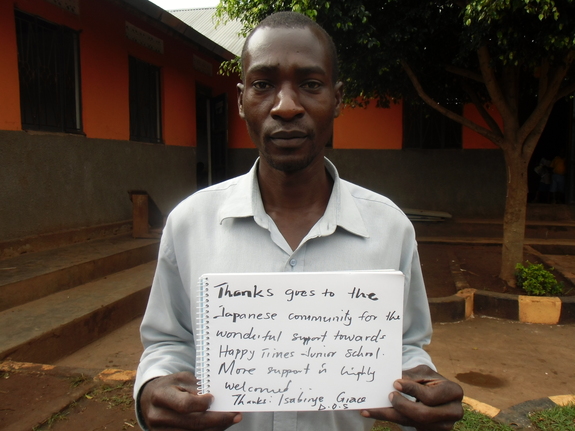 Thanks goes to the
Japanese community for the
wonderful support towards
Happy Times Junior School.
More support is highly
welcomed...
Thanks: Isabirye Grace
D.O.S